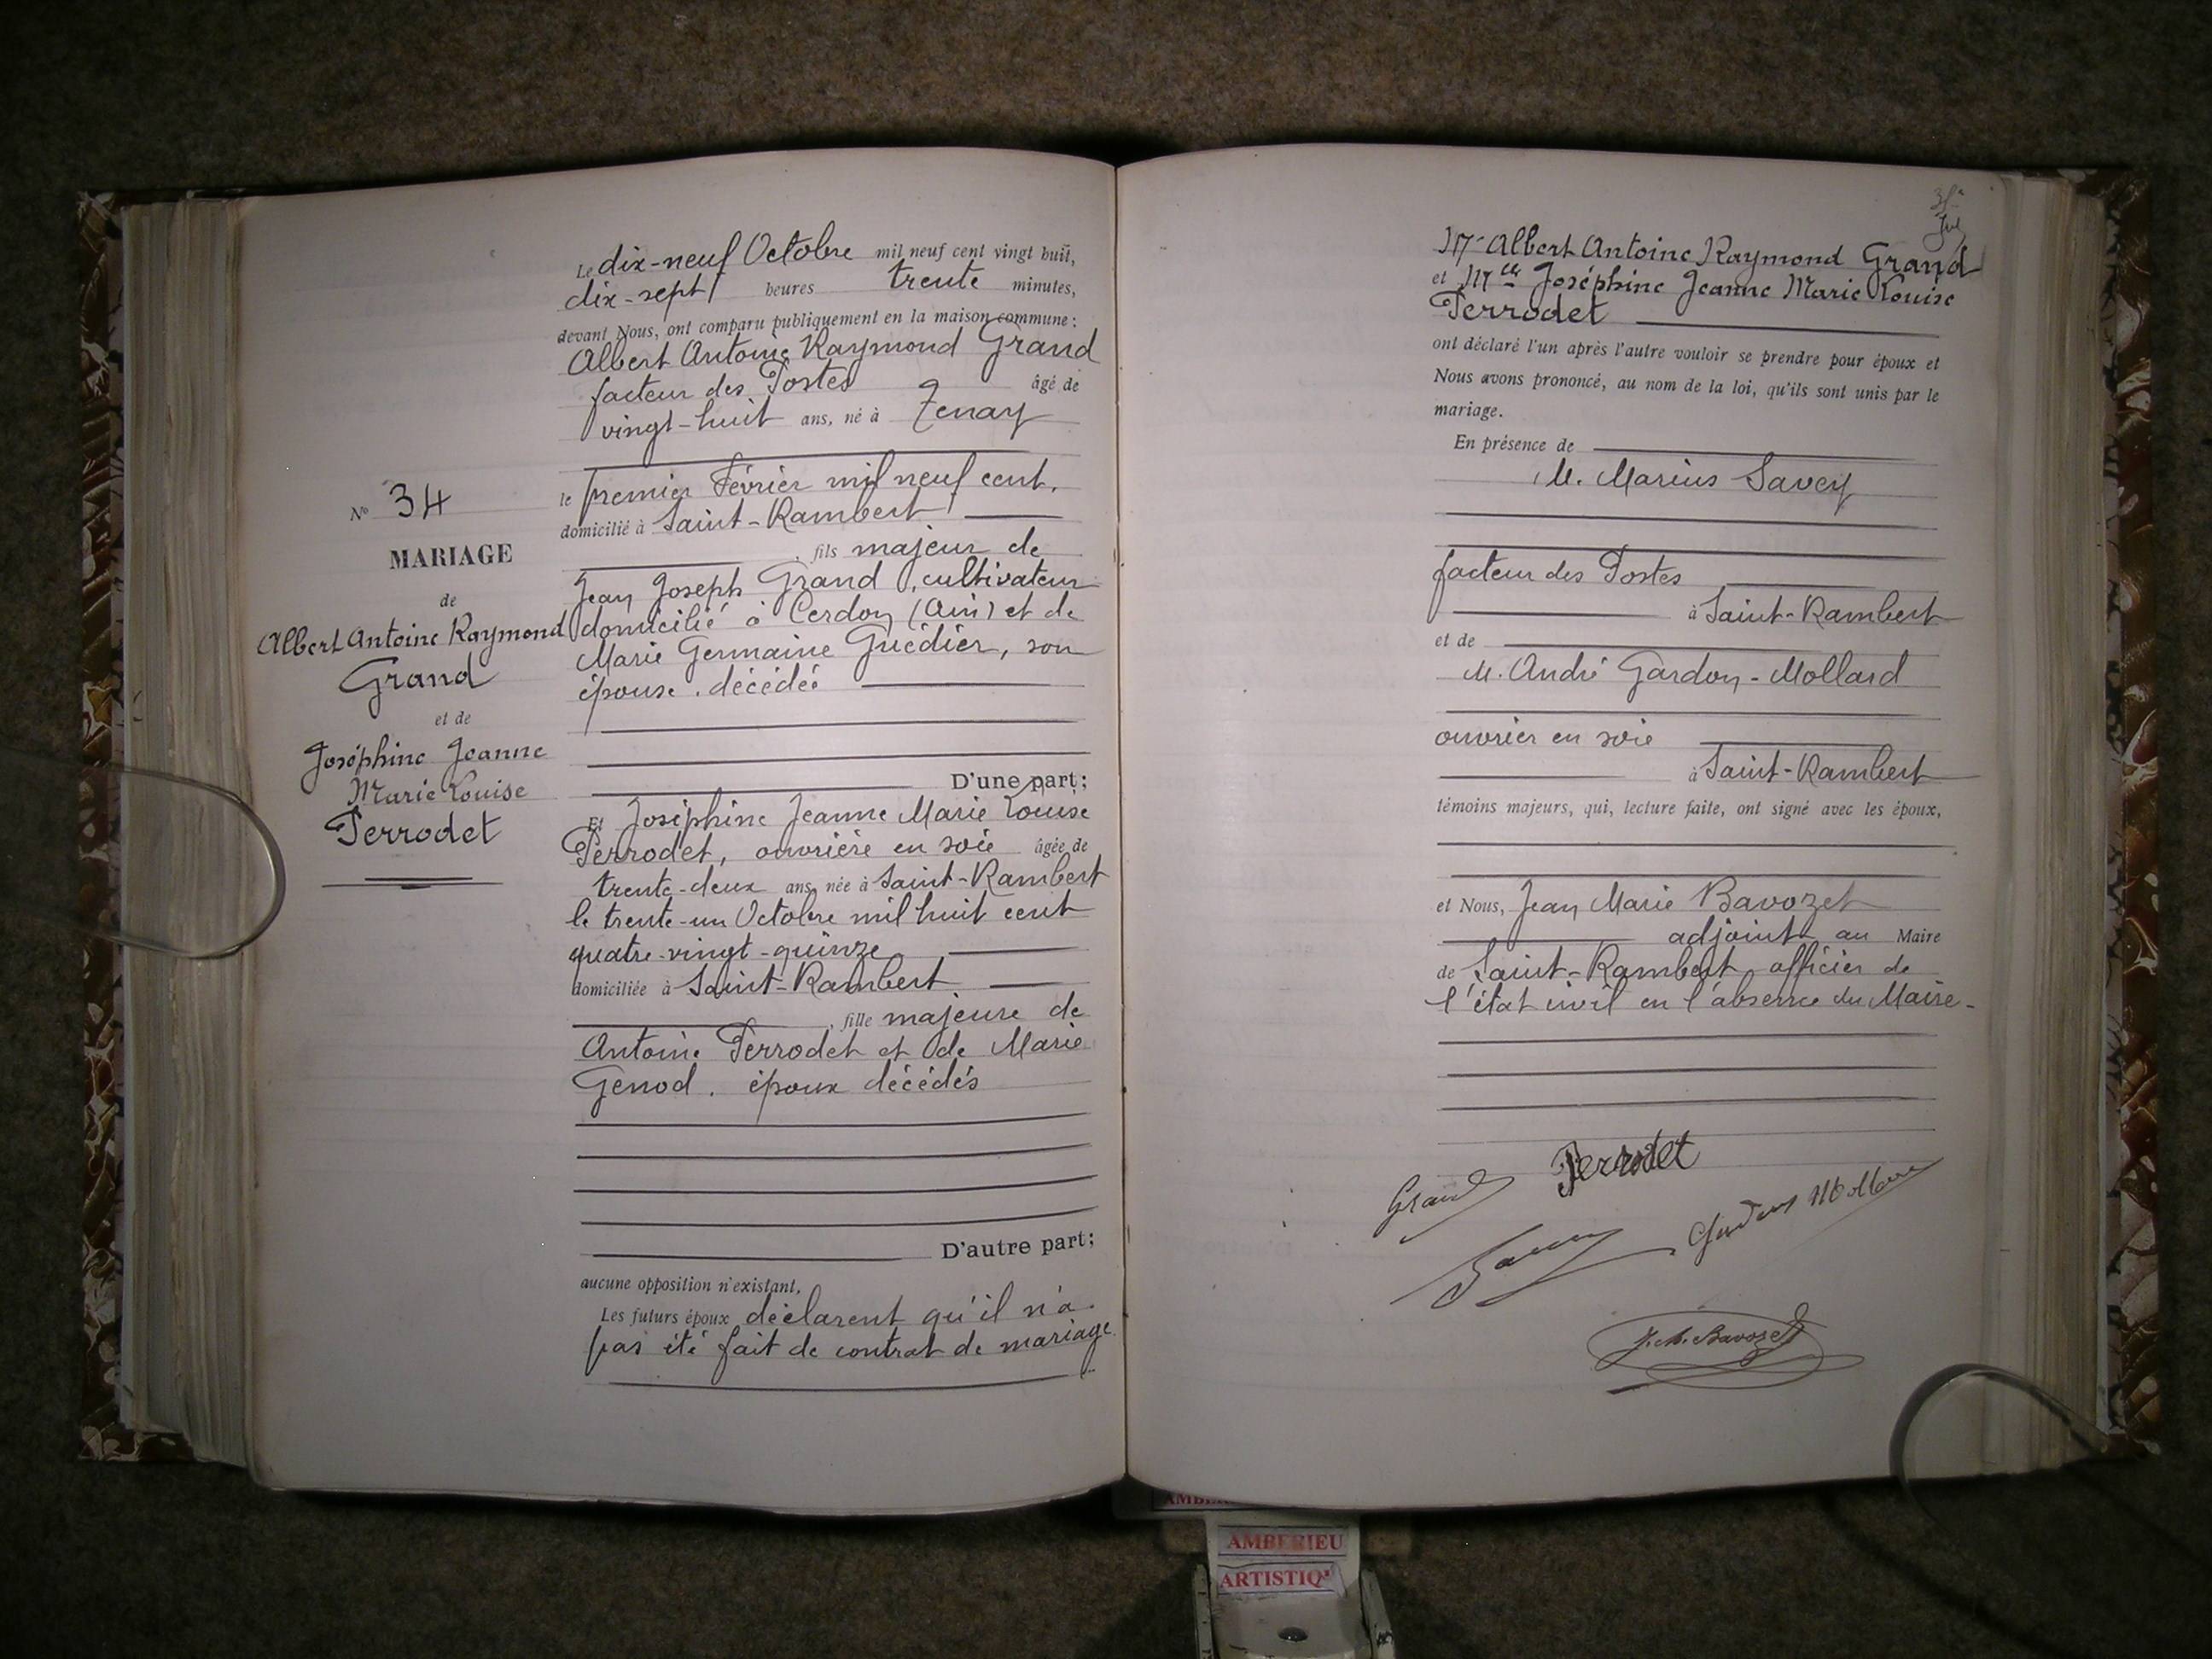 N° 34
MARIAGE
de
Albert Antoine Raymond
Grand
et de
Joséphine Jeanne
Marie Louise
Perrodet
Le dix-neuf Octobre mil neuf cent vingt huit,
dix-sept heures trente minutes,
devant Nous, ont comparu publiquement en la maison commune :
Albert Antoine Raymond Grand
facteur des Postes âgé de
vingt-huit ans, né à Tenay
le premier Février mil neuf cent,
domicilié à Saint-Rambert
, fils majeur de
Jean Joseph Grand, cultivateur
domicilié à Cerdon (Ain) et de
Marie Germaine Guédier, son
épouse, décédée
D'une part;
Et Joséphine Jeanne Marie Louise
Perrodet, ouvrière en soie âgée de
trente-deux ans, née à Saint-Rambert
le trente-un Octobre mil huit cent
quatre-vingt-quinze
domiciliée à Saint-Rambert
, fille majeure de
Antoine Perrodet et de Marie
Genod, époux décédés
D'autre part;
aucune opposition n'existant,
Les futurs époux déclarent qu'il n'a
pas été fait de contrat de mariage
Mr Albert Antoine Raymond Grand
et Melle Joséphine Jeanne Marie Louise
Perrodet
ont déclaré l'un après l'autre vouloir se prendre pour époux et
Nous avons prononcé, au nom de la loi, qu'ils sont unis par le
mariage.
En présence de
M. Marius Savey
facteur des Postes
à Saint-Rambert
et de
M. André Gardon-Mollard
ouvrier en soie
à Saint-Rambert
témoins majeurs, qui, lecture faite, ont signé avec les époux,
et Nous, Jean Marie Bavozet
adjoint au Maire
de Saint-Rambert, officier de
l'état civil en l'absence du Maire-
Perrodet
Grand
Savey
J. M. Bavozet
AMBERIEU
ARTISTIQ